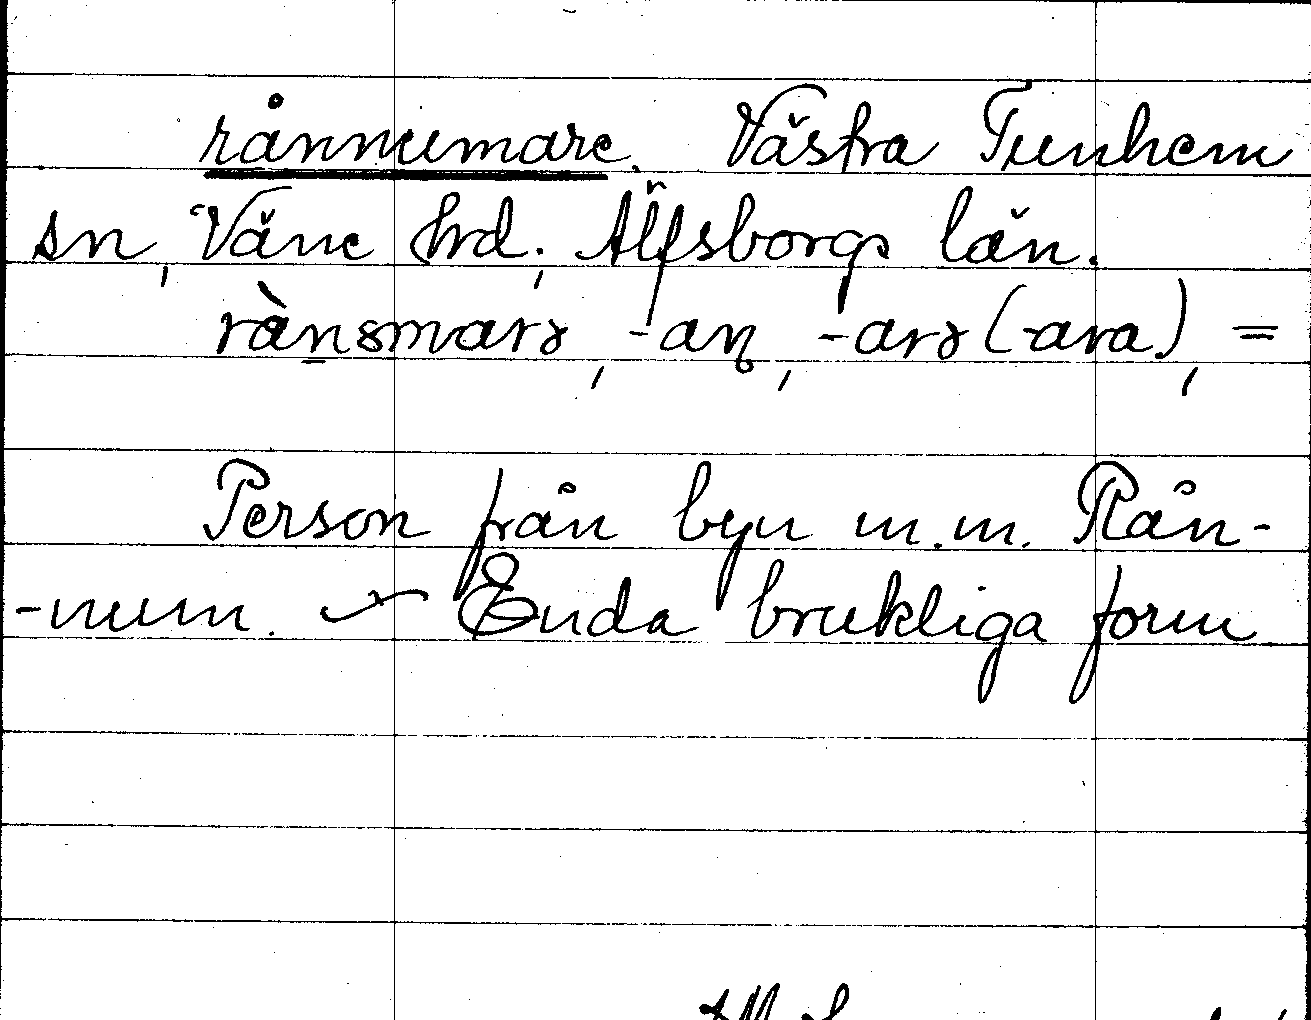 rånnumare. Västra Tunhem
sn, Väne hrd; Älfsborgs län.
rànəmarə, -aɳ, -arə (-ara), =
Person från byn m.m. Rån-
-num. Enda brukliga form